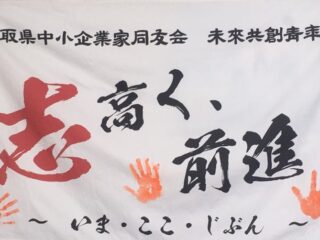 取県中小企業家同友会 未來共創青年
志高く、
前進
～ いま・ここ・じぶん ～